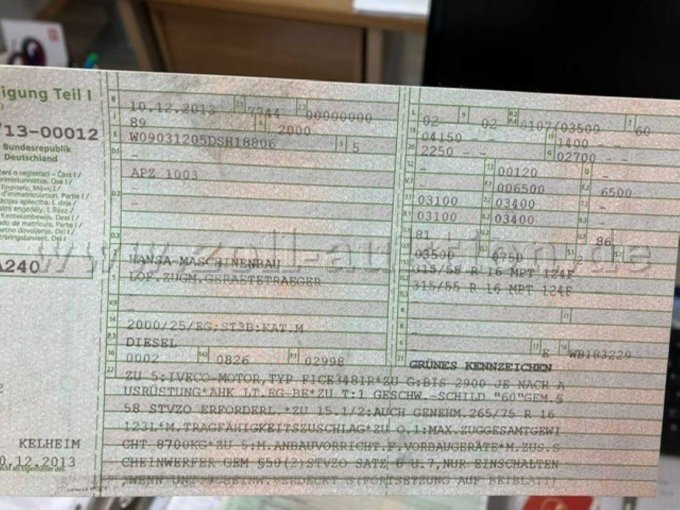 igung Teil I
713-00012
Bundesrepublik
Deutschland
A240
KELHEIM
0.12.2013
10.12.2013 7744 00000000
89 2000
W09031205DSH18806 5
-
APZ 1003
-
HANSA-MASCHINENBAU
LOF.ZUGM.GERAETETRAEGER
-
2000/25/EG;ST3B:KAT.M
DIESEL
0002 0826 02998
02 02 0107/03500 60
04150 - 1400 - -
2250 - - 02700 - -
- 00120 -
- 006500 6500
03100 03400 -
03100 03400 -
81 - 86
03500 0750 2
315/55 R 16 MPT 124F
315/55 R 16 MPT 124F
-
-
- E WB183229
GRÜNES KENNZEICHEN
ZU 5:IVECO-MOTOR,TYP F1CE3481R*ZU G:BIS 2900 JE NACH A
USRÜSTUNG*AHK LT.EG-BE*ZU T:1 GESCHW.-SCHILD "60"GEM.§
58 STVZO ERFORDERL.*ZU 15.1/2:AUCH GENEHM.265/75 R 16
123L*M.TRAGFÄHIGKEITSZUSCHLAG*ZU O.1:MAX.ZUGGESAMTGEWI
CHT 8700KG*ZU 5:M.ANBAUVORRICHT.F.VORBAUGERÄTE*M.ZUS.S
CHEINWERFER GEM §50(2)STVZO SATZ 6 U.7,NUR EINSCHALTEN
,WENN VERDECKT S(FORTSETZUNG AUF BEIBLATT)
www.zoll-auktion.de